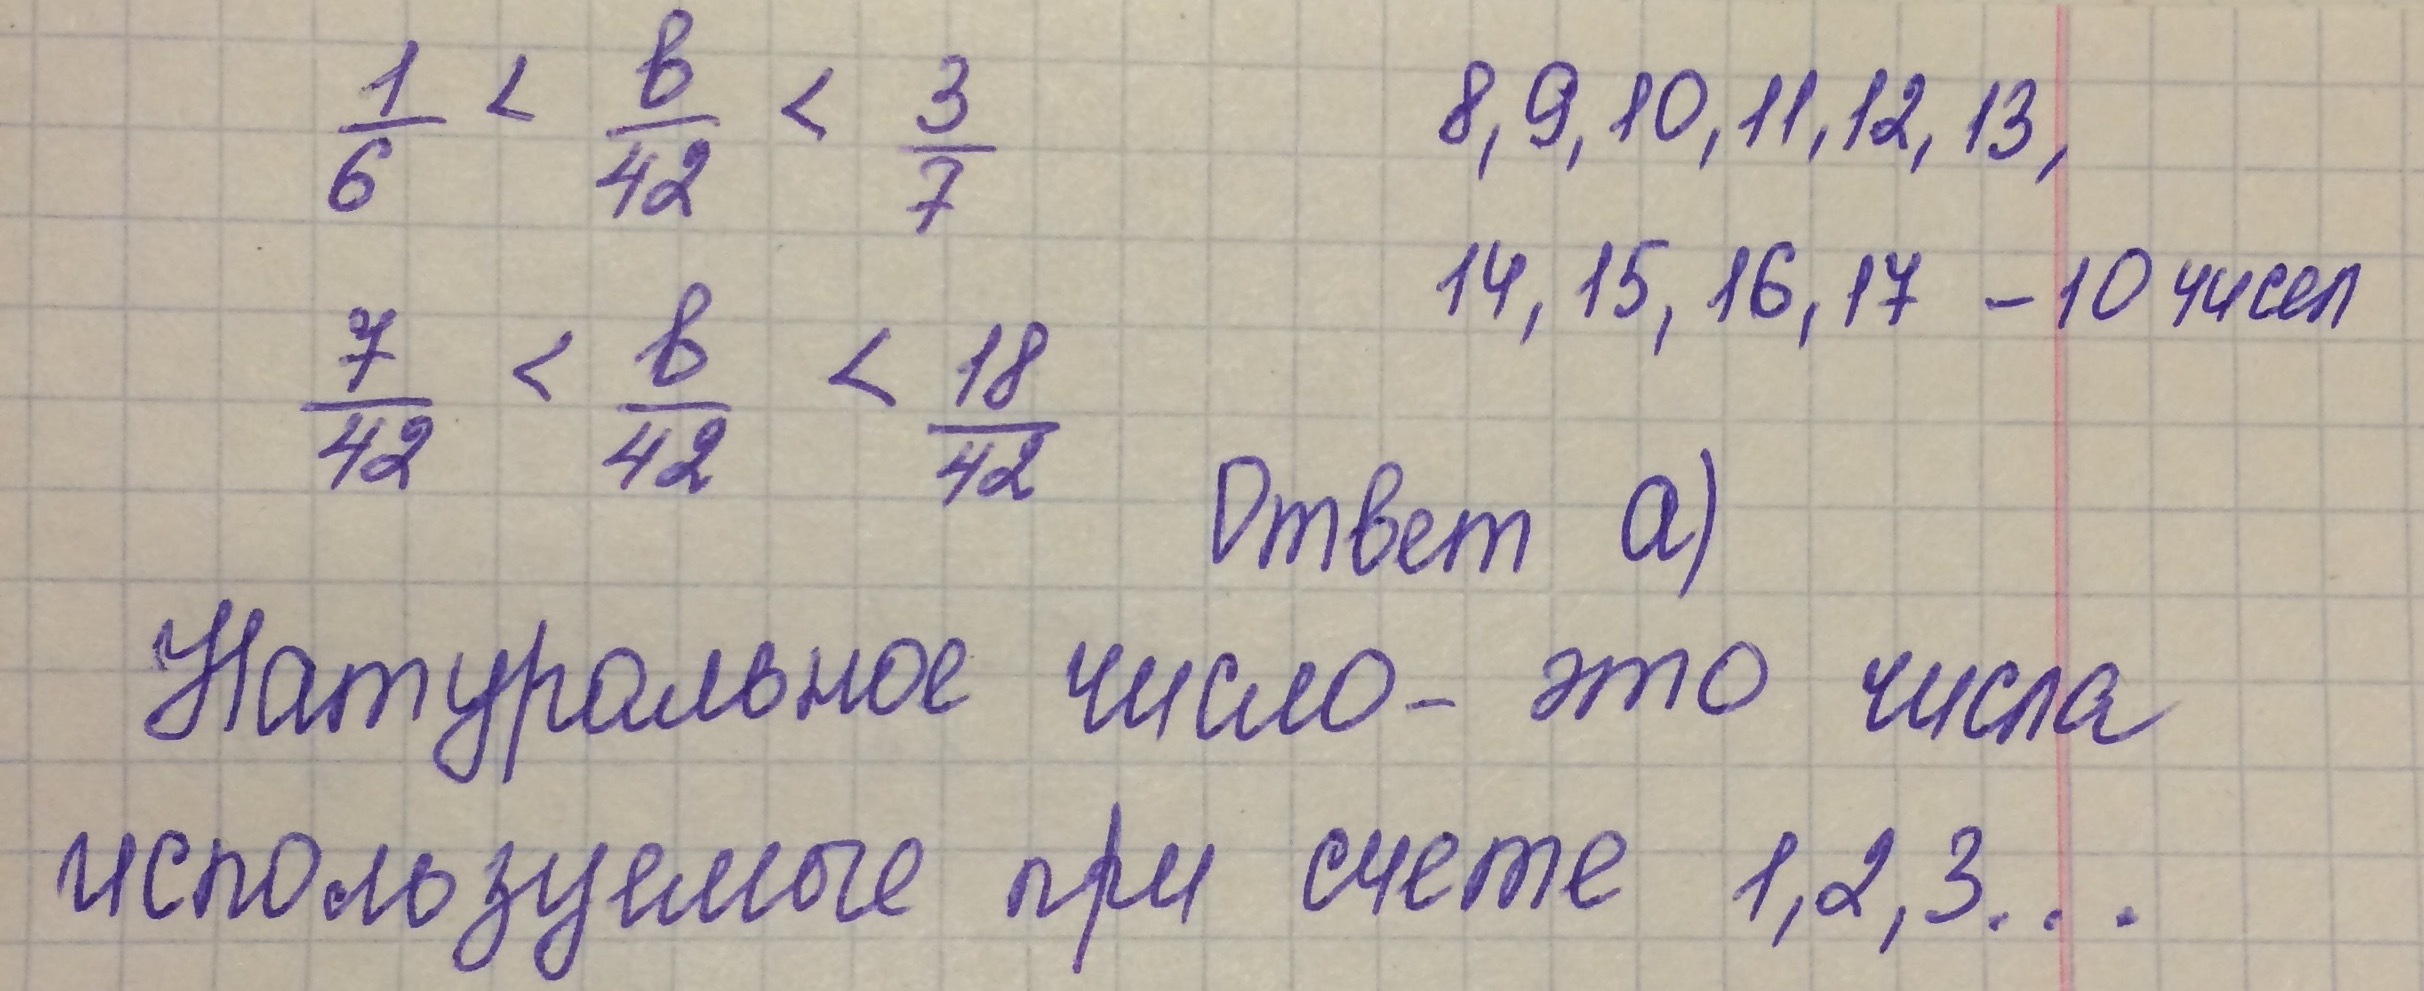 1/6 < в/42 < 3/7
8, 9, 10, 11, 12, 13,
14, 15, 16, 17 - 10 чисел
7/42 < в/42 < 18/42
Ответ а)
Натуральное число - это числа
используемые при счете 1, 2, 3...